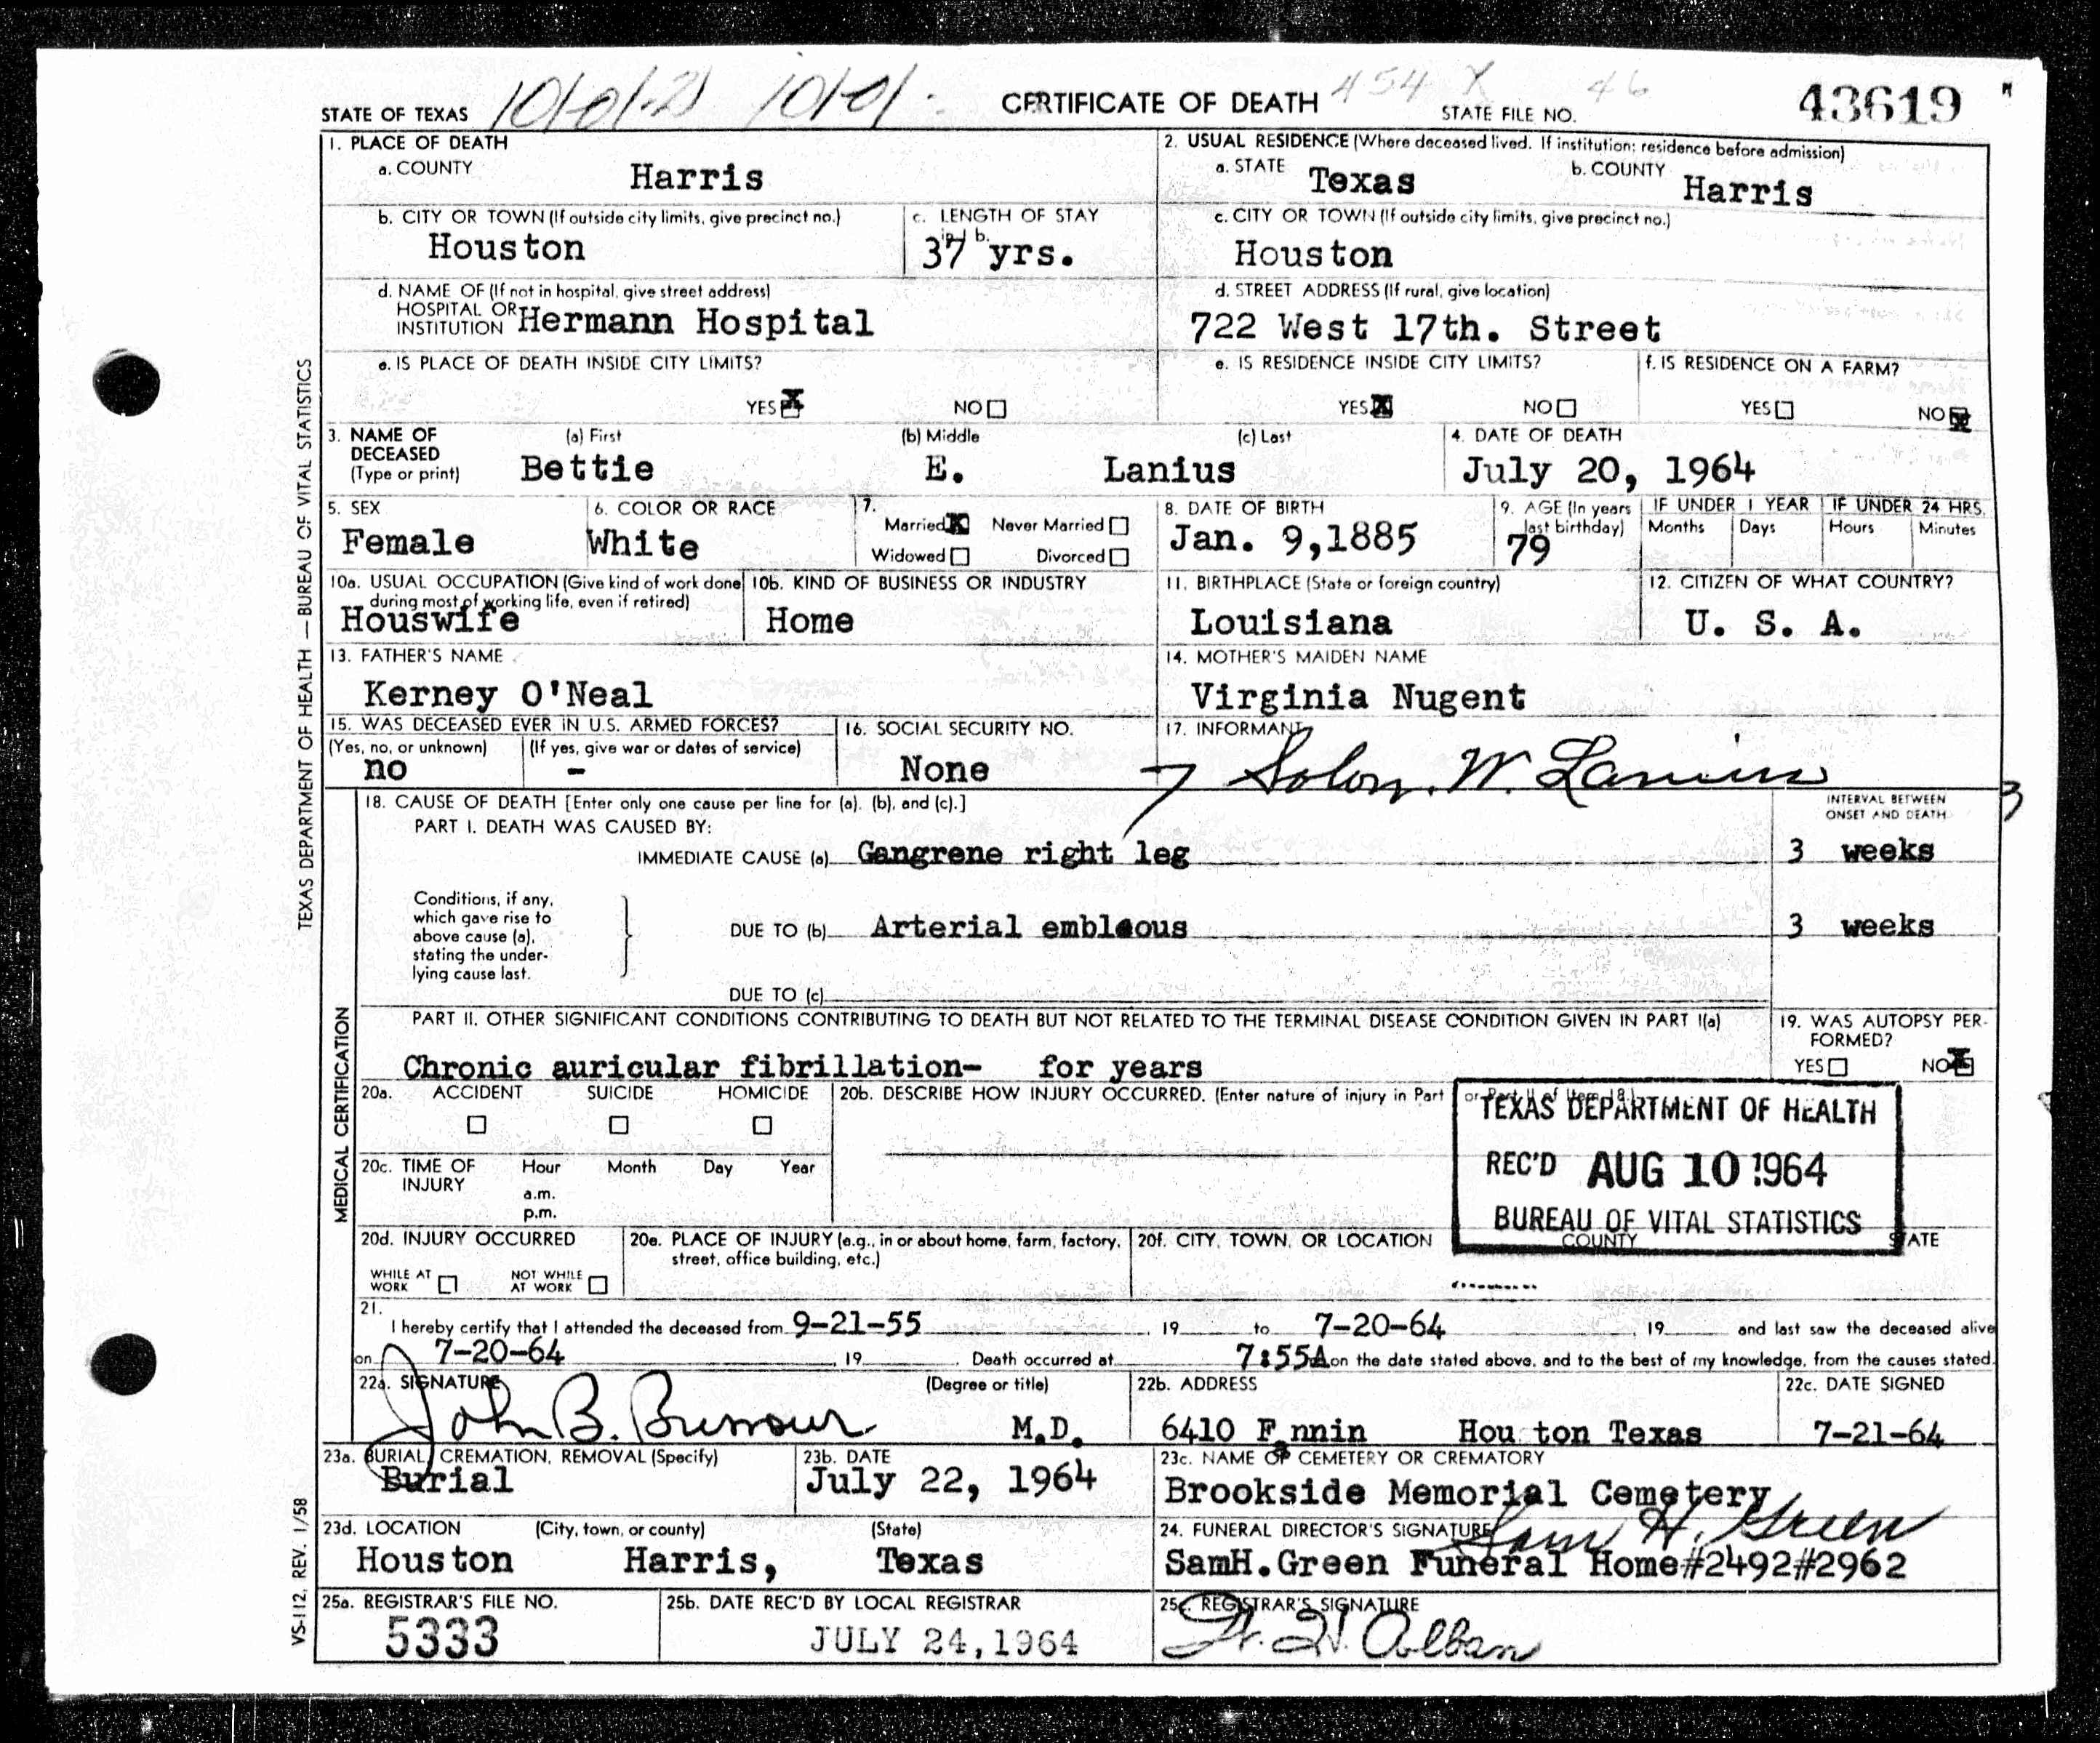 STATE OF TEXAS 10/01-21 10/01. CERTIFICATE OF DEATH 454 X STATE FILE NO. 46 43619
1. PLACE OF DEATH
a. COUNTY Harris
2. USUAL RESIDENCE (Where deceased lived. If institution: residence before admission)
a. STATE Texas b. COUNTY Harris
b. CITY OR TOWN (If outside city limits, give precinct no.) Houston
c. LENGTH OF STAY in 1 b. 37 yrs.
c. CITY OR TOWN (If outside city limits, give precinct no.) Houston
d. NAME OF (If not in hospital, give street address)
HOSPITAL OR
INSTITUTION Hermann Hospital
d. STREET ADDRESS (If rural, give location)
722 West 17th. Street
e. IS PLACE OF DEATH INSIDE CITY LIMITS?
YES X NO
e. IS RESIDENCE INSIDE CITY LIMITS?
YES X NO
f. IS RESIDENCE ON A FARM?
YES NO X
3. NAME OF DECEASED (Type or print)
(a) First Bettie
(b) Middle E.
(c) Last Lanius
4. DATE OF DEATH
July 20, 1964
5. SEX
Female
6. COLOR OR RACE
White
7.
Married X Never Married
Widowed Divorced
8. DATE OF BIRTH
Jan. 9,1885
9. AGE (In years last birthday)
79
IF UNDER 1 YEAR
Months Days
IF UNDER 24 HRS.
Hours Minutes
10a. USUAL OCCUPATION (Give kind of work done during most of working life, even if retired)
Houswife
10b. KIND OF BUSINESS OR INDUSTRY
Home
11. BIRTHPLACE (State or foreign country)
Louisiana
12. CITIZEN OF WHAT COUNTRY?
U. S. A.
13. FATHER'S NAME
Kerney O'Neal
14. MOTHER'S MAIDEN NAME
Virginia Nugent
15. WAS DECEASED EVER IN U.S. ARMED FORCES?
(Yes, no, or unknown) no
(If yes, give war or dates of service) -
16. SOCIAL SECURITY NO.
None
17. INFORMANT
Solon. W. Lanius
18. CAUSE OF DEATH [Enter only one cause per line for (a), (b), and (c).]
INTERVAL BETWEEN ONSET AND DEATH
PART I. DEATH WAS CAUSED BY:
IMMEDIATE CAUSE (a) Gangrene right leg 3 weeks
Conditions, if any, which gave rise to above cause (a), stating the underlying cause last.
DUE TO (b) Arterial embleous 3 weeks
DUE TO (c)
PART II. OTHER SIGNIFICANT CONDITIONS CONTRIBUTING TO DEATH BUT NOT RELATED TO THE TERMINAL DISEASE CONDITION GIVEN IN PART I(a)
Chronic auricular fibrillation- for years
19. WAS AUTOPSY PERFORMED?
YES NO X
20a. ACCIDENT SUICIDE HOMICIDE
20b. DESCRIBE HOW INJURY OCCURRED. (Enter nature of injury in Part or Part II of Item 18.)
TEXAS DEPARTMENT OF HEALTH
REC'D AUG 10 1964
BUREAU OF VITAL STATISTICS
20c. TIME OF INJURY
Hour Month Day Year
a.m.
p.m.
20d. INJURY OCCURRED
WHILE AT WORK NOT WHILE AT WORK
20e. PLACE OF INJURY (e.g., in or about home, farm, factory, street, office building, etc.)
20f. CITY, TOWN, OR LOCATION COUNTY STATE
21.
I hereby certify that I attended the deceased from 9-21-55, 19 to 7-20-64, 19 and last saw the deceased alive
on 7-20-64, 19. Death occurred at 7:55A on the date stated above, and to the best of my knowledge, from the causes stated.
22a. SIGNATURE (Degree or title)
John B. M.D.
22b. ADDRESS
6410 F nnin Hou ton Texas
22c. DATE SIGNED
7-21-64
23a. BURIAL, CREMATION, REMOVAL (Specify)
Burial
23b. DATE
July 22, 1964
23c. NAME OF CEMETERY OR CREMATORY
Brookside Memorial Cemetery
23d. LOCATION (City, town, or county) (State)
Houston Harris, Texas
24. FUNERAL DIRECTOR'S SIGNATURE
Sam H. Green
SamH.Green Funeral Home#2492#2962
25a. REGISTRAR'S FILE NO.
5333
25b. DATE REC'D BY LOCAL REGISTRAR
JULY 24,1964
25c. REGISTRAR'S SIGNATURE
TEXAS DEPARTMENT OF HEALTH — BUREAU OF VITAL STATISTICS
MEDICAL CERTIFICATION
VS-112. REV. 1/58